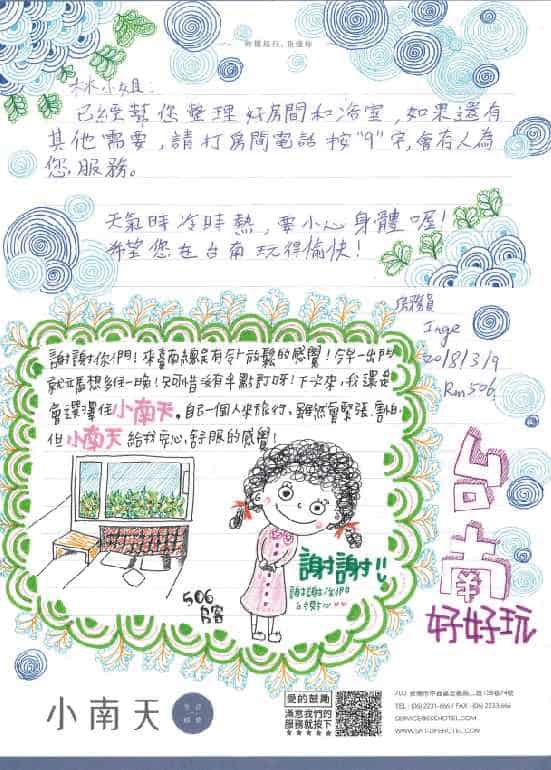 林小姐：
已經幫您整理好房間和浴室，如果還有
其他需要，請打房間電話按"9"字，會有人為
您服務。
天氣時冷時熱，要小心身體喔！
希望您在台南玩得愉快！
Inge
2018/3/9
Rm506.
謝謝你們！來臺南總是有令人放鬆的感覺！今早一出門
就在想多住一晚！只可惜沒有早點訂呀！下次來，我還是
會選擇住小南天。自己一個人來旅行，雖然會緊張、害怕，
但小南天給我安心、舒服的感覺！
506
房客
謝謝!!
謝謝你們
的點心
台南
好好玩
小南天
生活
輕旅
愛的鼓勵
滿意我們的
服務就按下
★★★★★